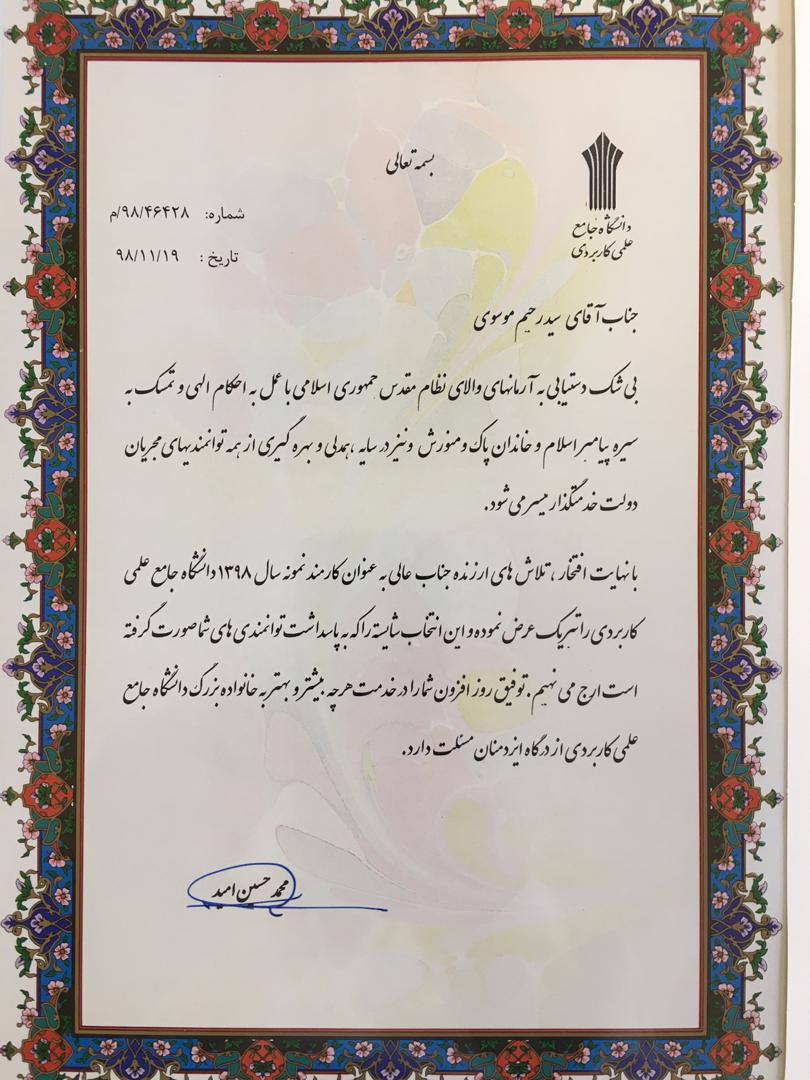 بسمه تعالی
دانشگاه جامع
علمی کاربردی
شماره: ۹۸/۴۶۴۲۸/م
تاریخ: ۹۸/۱۱/۱۹
جناب آقای سید رحیم موسوی
بی شک دستیابی به آرمانهای والای نظام مقدس جمهوری اسلامی با عمل به احکام الهی و تمسک به
سیره پیامبر اسلام و خاندان پاک و منورش و نیز در سایه ،همدلی و بهره گیری از همه توانمندیهای مجریان
دولت خدمتگذار میسر می شود.
با نهایت افتخار ، تلاش های ارزنده جناب عالی به عنوان کارمند نمونه سال ۱۳۹۸ دانشگاه جامع علمی
کاربردی را تبریک عرض نموده و این انتخاب شایسته را که به پاسداشت توانمندی های شما صورت گرفته
است ارج می نهیم. توفیق روز افزون شما را در خدمت هر چه بیشتر و بهتر به خانواده بزرگ دانشگاه جامع
علمی کاربردی از درگاه ایزد منان مسئلت دارد.
محمد حسین امید